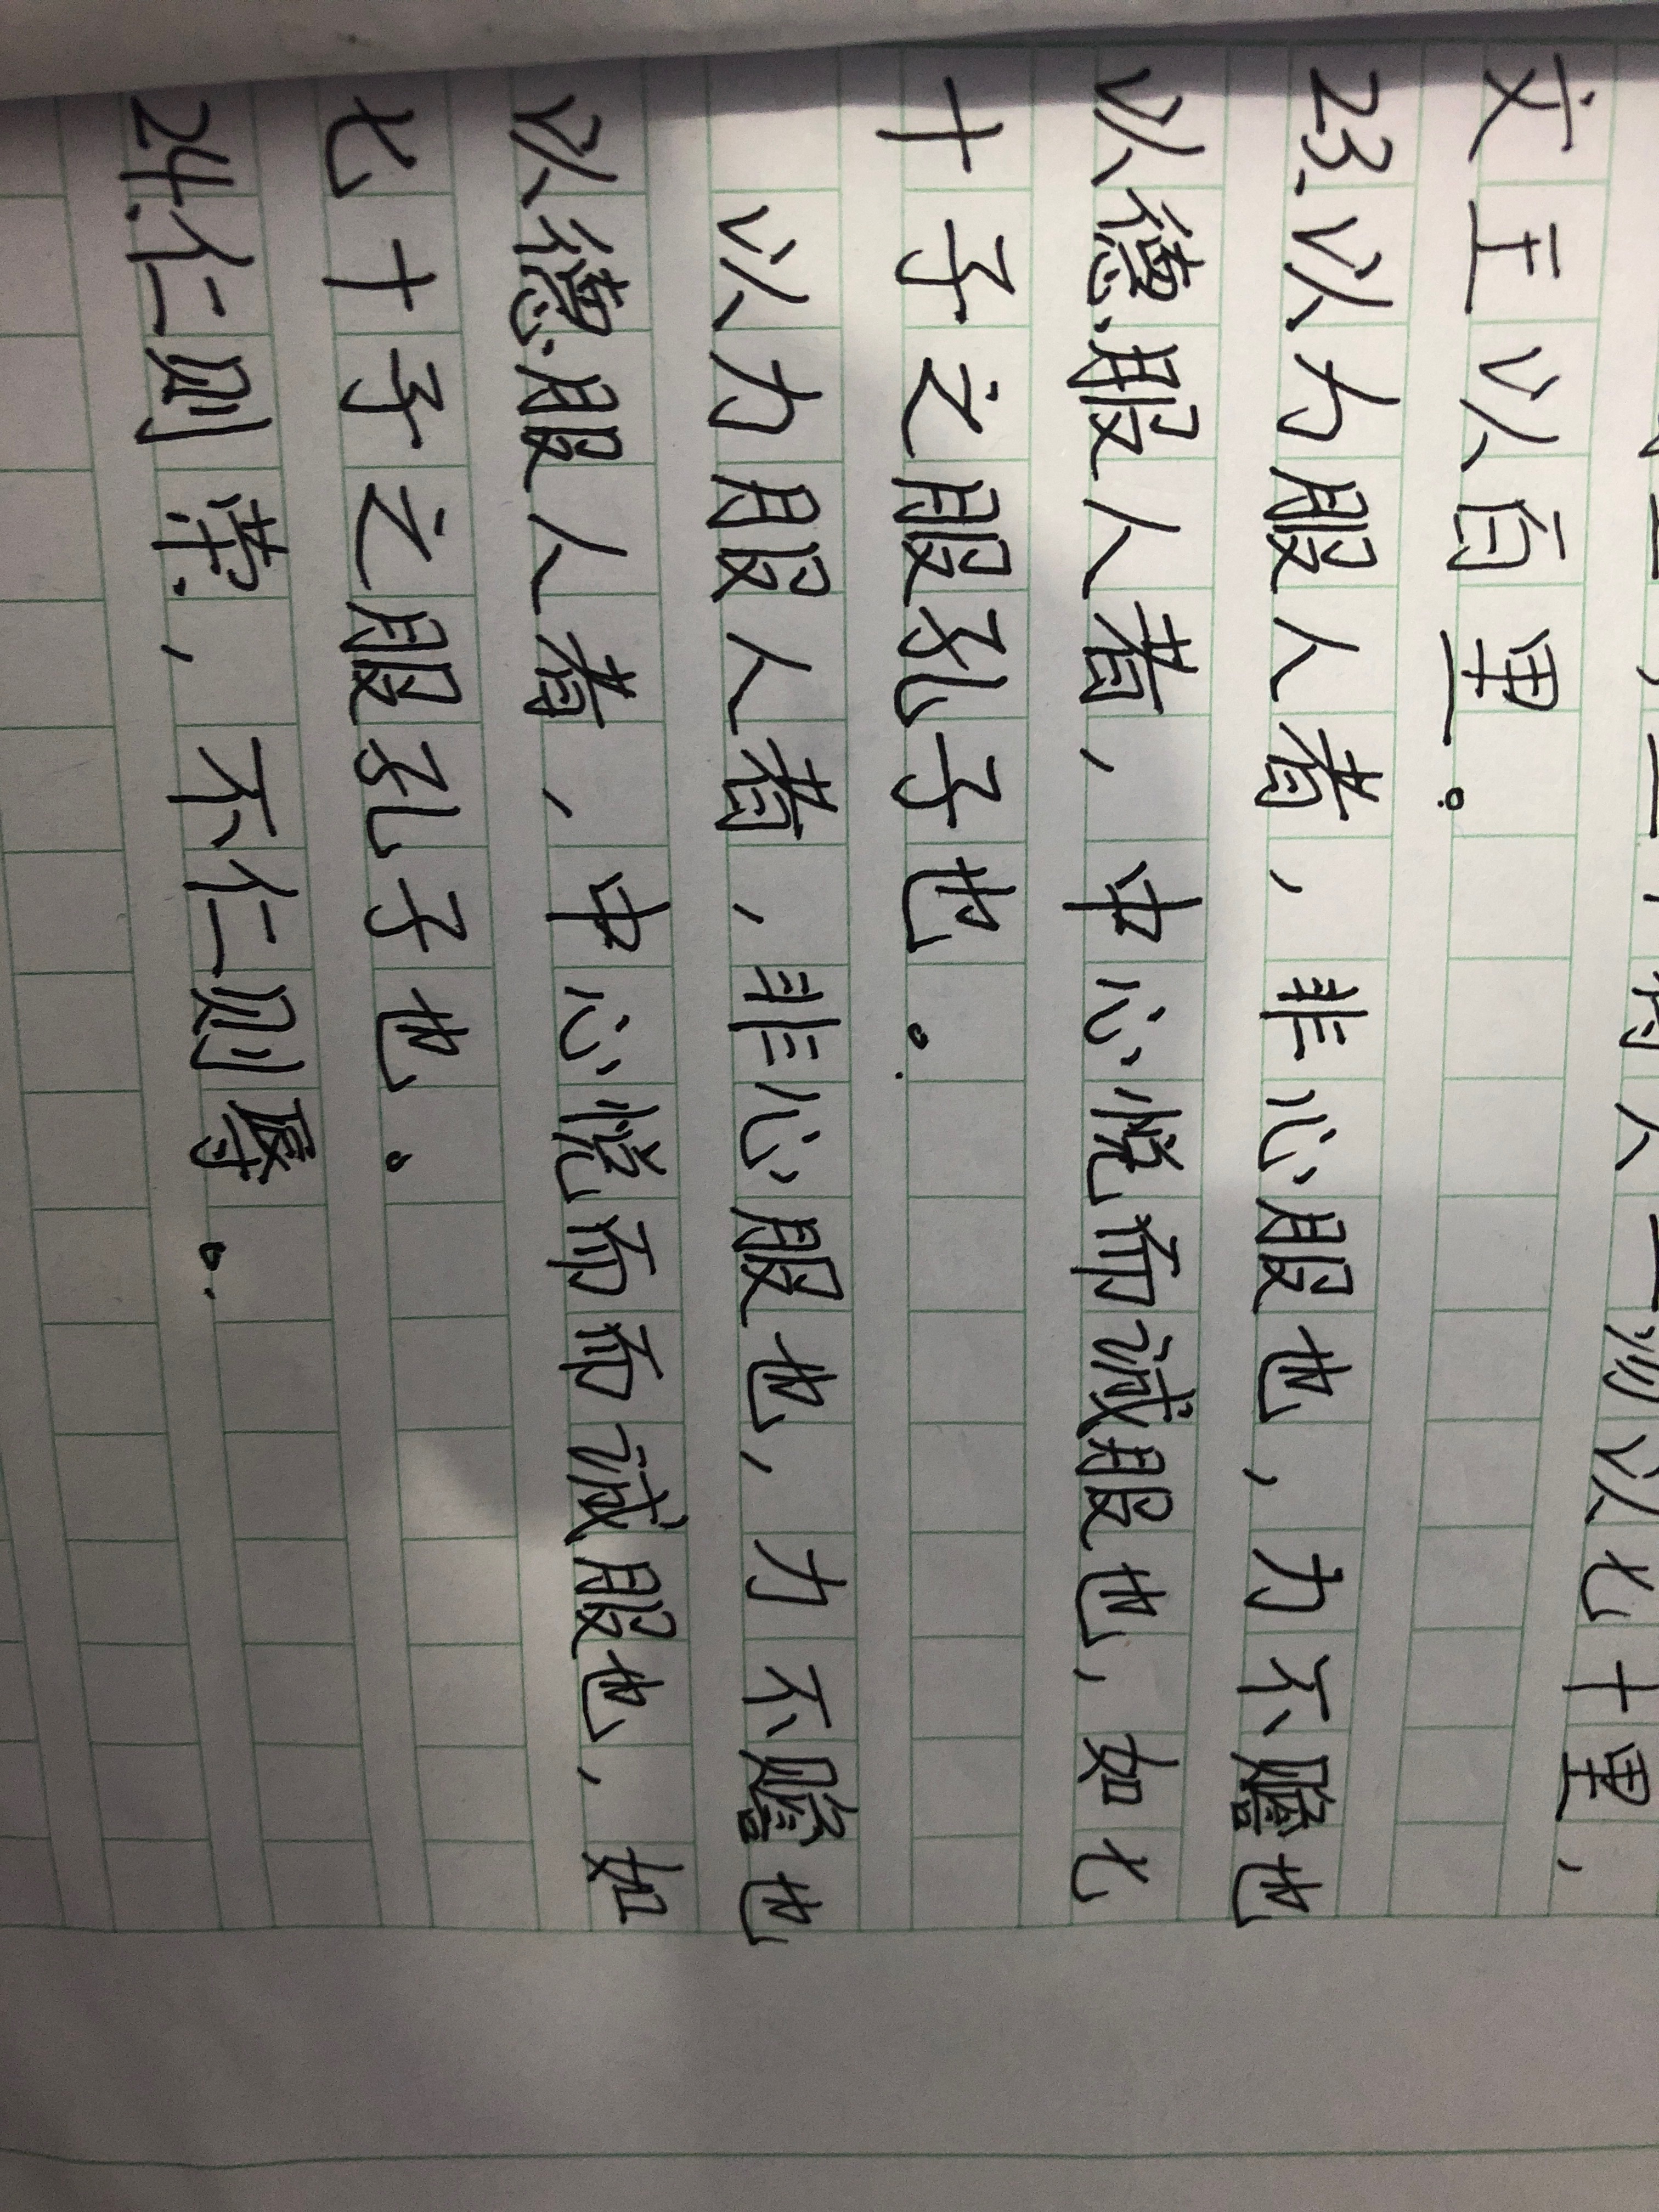 汤以七十里，
文王以百里。
23.以力服人者，非心服也，力不赡也
以德服人者，中心悦而诚服也，如七
十子之服孔子也。
以力服人者，非心服也，力不赡也
以德服人者，中心悦而而诚服也，如
七十子之服孔子也。
24.仁则荣，不仁则辱。